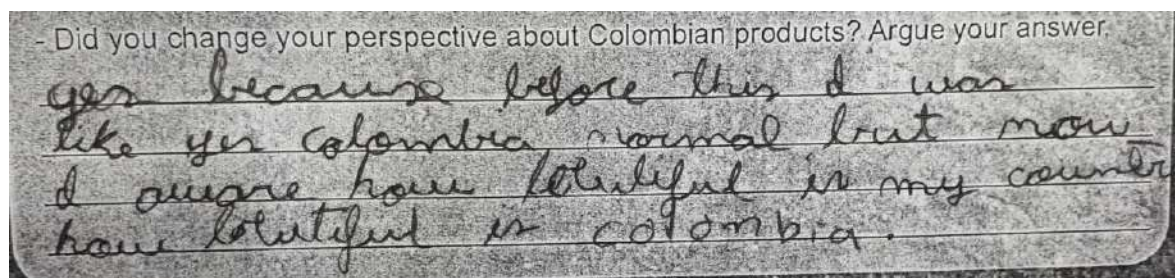 - Did you change your perspective about Colombian products? Argue your answer.
yes because before this I was
like yes colombia, normal but now
I aware how beutiful is my countr
how beutiful is colombia.